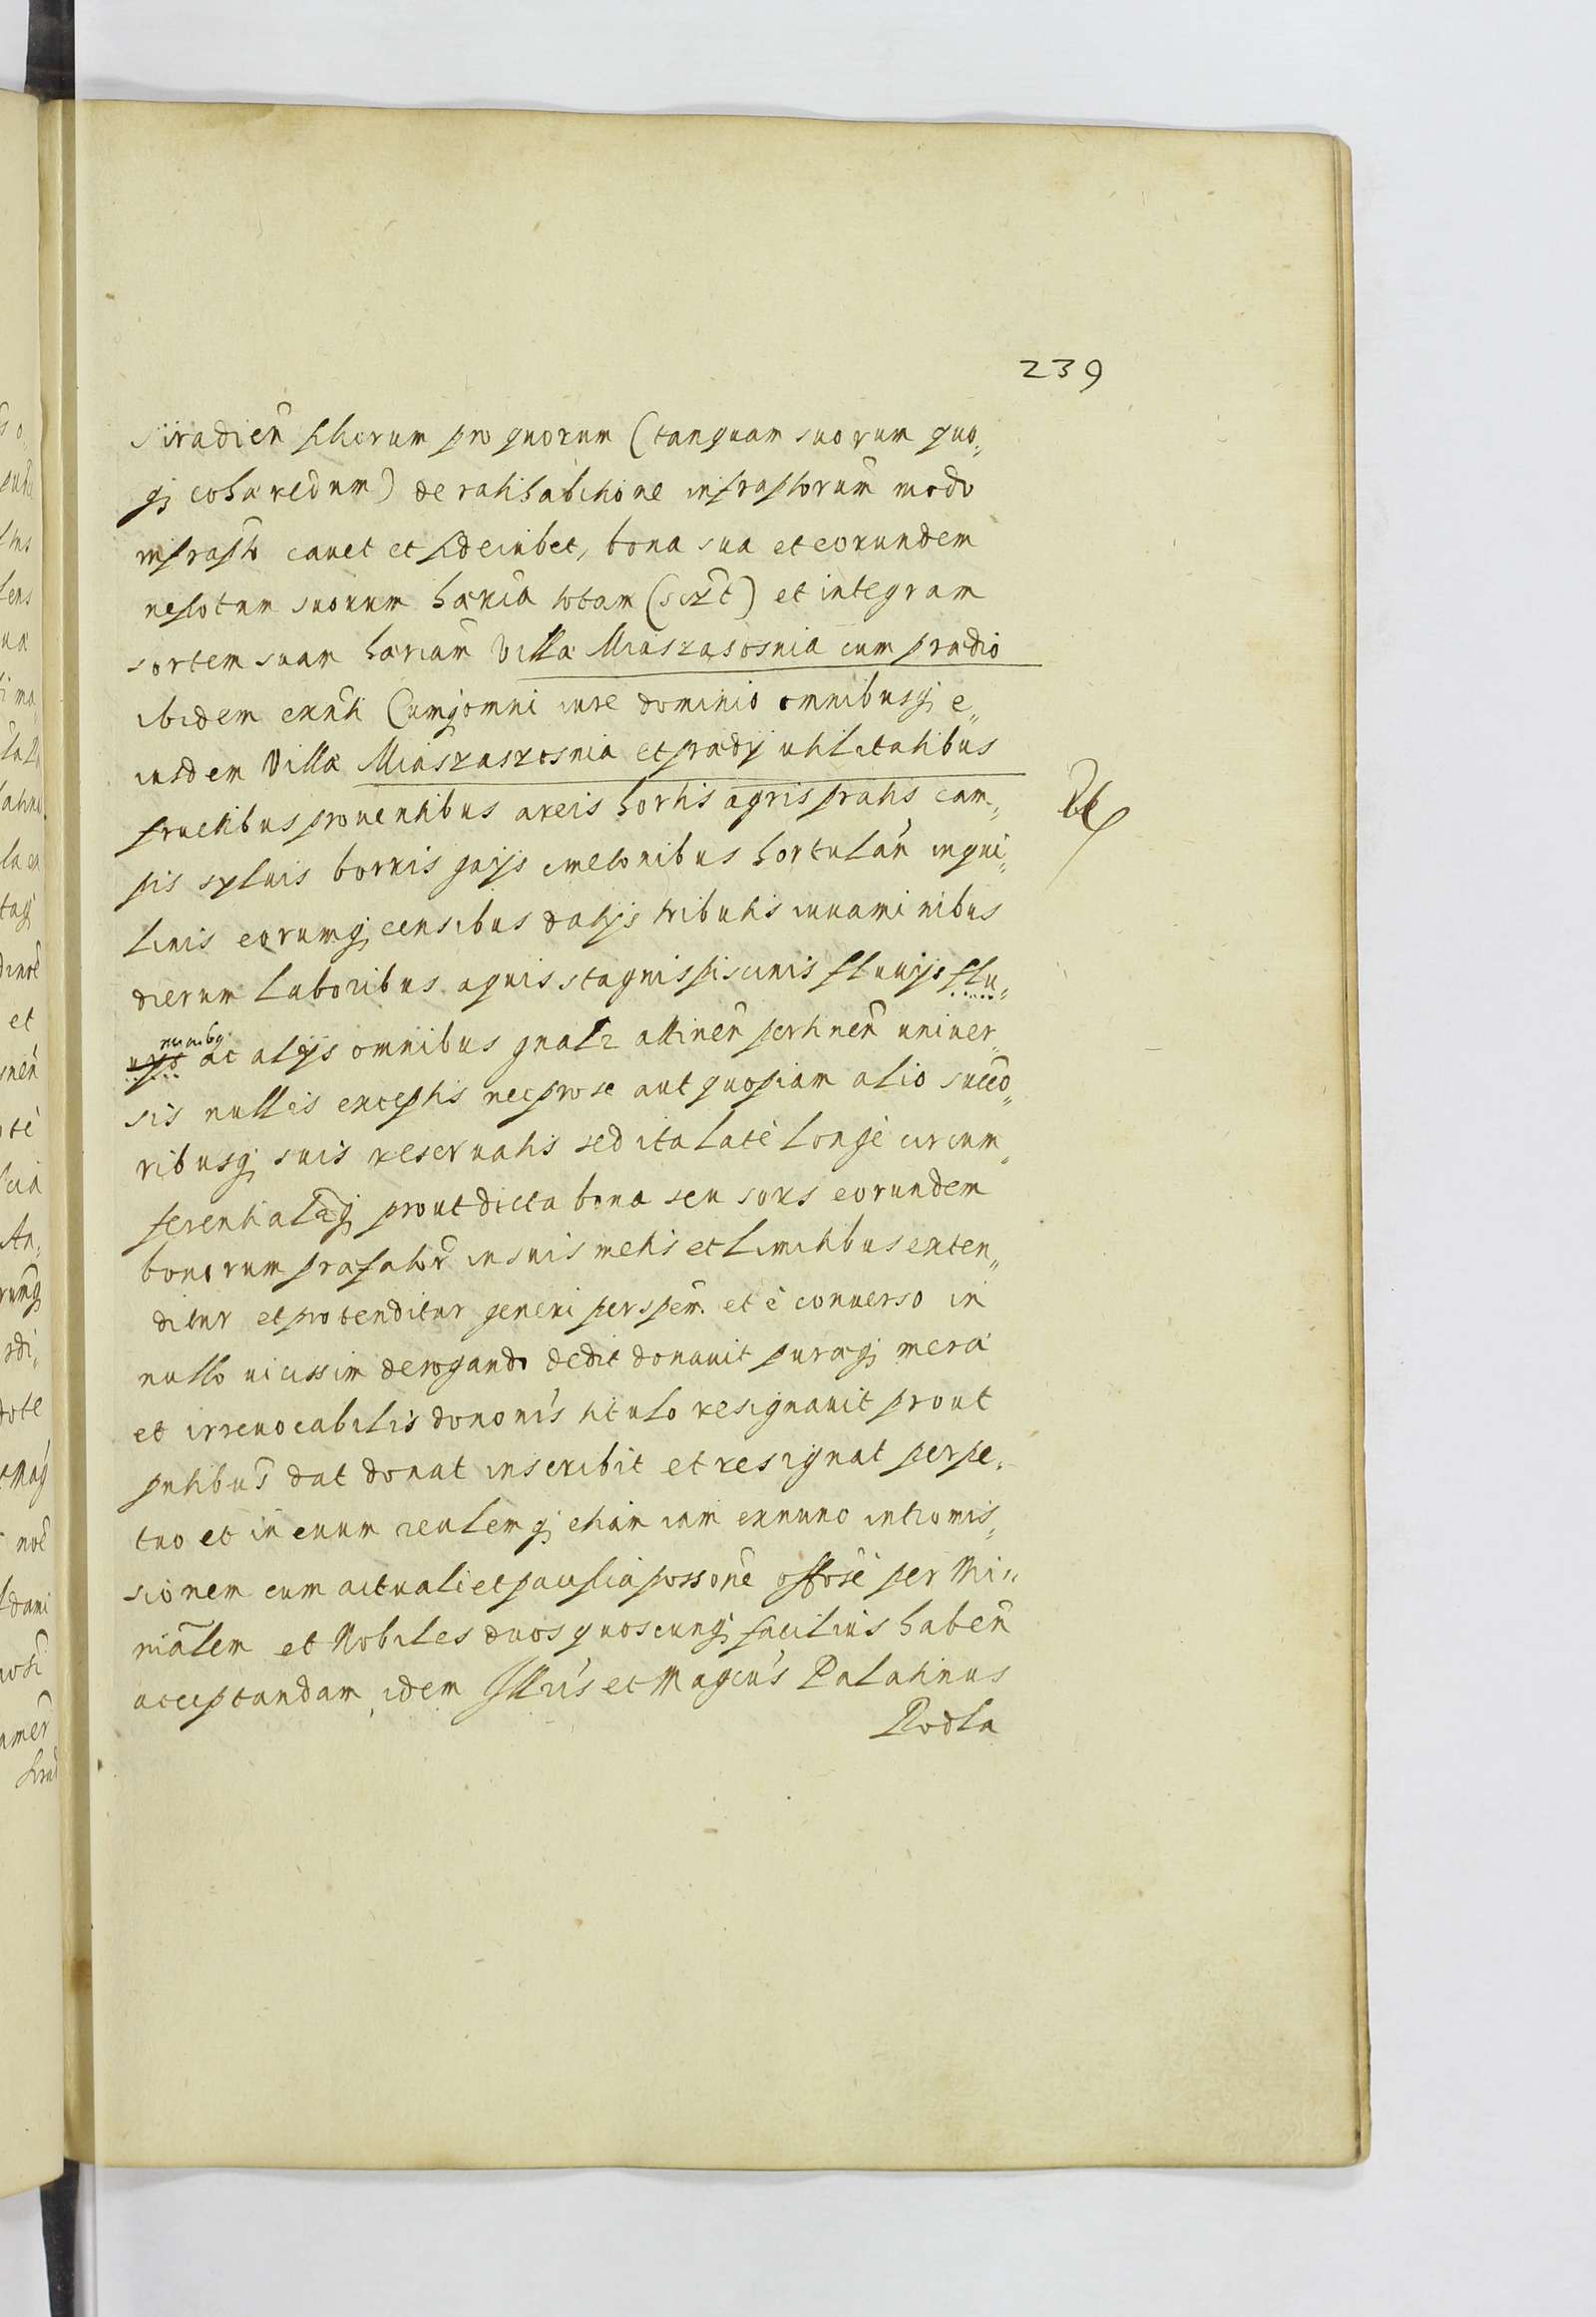 239
Siradien filiorum pro quorum (tanquam suorum quo„
q3 cohæredum) de ratihabitione infraptorum modo
infrapto cauet et fideiubet, bona sua et eorundem
nepotum suorum hæria totam (scizt) et integram
sortem suam hæriam Villæ Miaszasosnia cum prædio
ibidem exnti Cumq3 omni iure dominio omnibusq3 e„
iusdem Villæ Miaszaszosnia et prædij utilitatibus
fructibus prouentibus areis hortis agris pratis cam„
pis syluis borris gajs cmetonibus hortulan inqui„
linis eorumq3 censibus datijs tributis iuuaminibus
dierum laboribus aquis stagnis piscinis fluuijs flu„
minibq3
uijs ac alijs omnibus gnalr attinen pertinen uniuer„
sis nullis exceptis nec pro se aut quopiam alio succo„
ribusq3 suis reseruatis sed ita latè longè circum„
ferentialrq3 prout dicta bona seu sors eorundem
bonorum præfator in suis metis et limitibus exten„
ditur et protenditur generi per spem. et è conuerso in
nullo uicissim derogando dedit donauit puræq3 meræ
et irreuocabilis dononis titulo resignauit prout
pntibus dat donat inscribit et resignat perpe„
tuo et in æuum realemq3 etiam iam exnunc intromis„
sionem cum actuali et pacifica possone offose per Mi„
nialem et Nobiles duos quoscunq3 facilius haben
acceptandam idem Illris et Magcus Palatinus
Podla